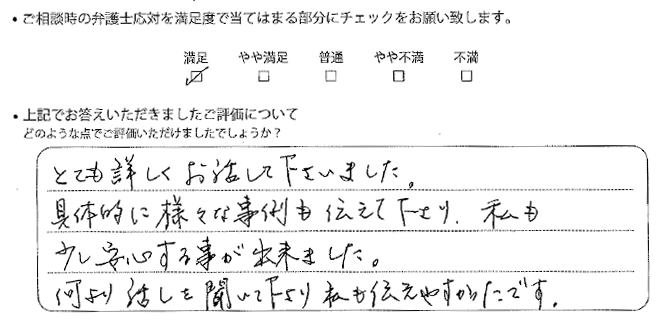 ・ご相談時の弁護士応対を満足度で当てはまる部分にチェックをお願い致します。
満足 やや満足 普通 やや不満 不満
・上記でお答えいただきましたご評価について
どのような点でご評価いただけましたでしょうか？
とても詳しくお話して下さいました。
具体的に様々な事例も伝えて下さり、私も
少し安心する事が出来ました。
何より話しを聞いて下より私も伝えやすかったです。